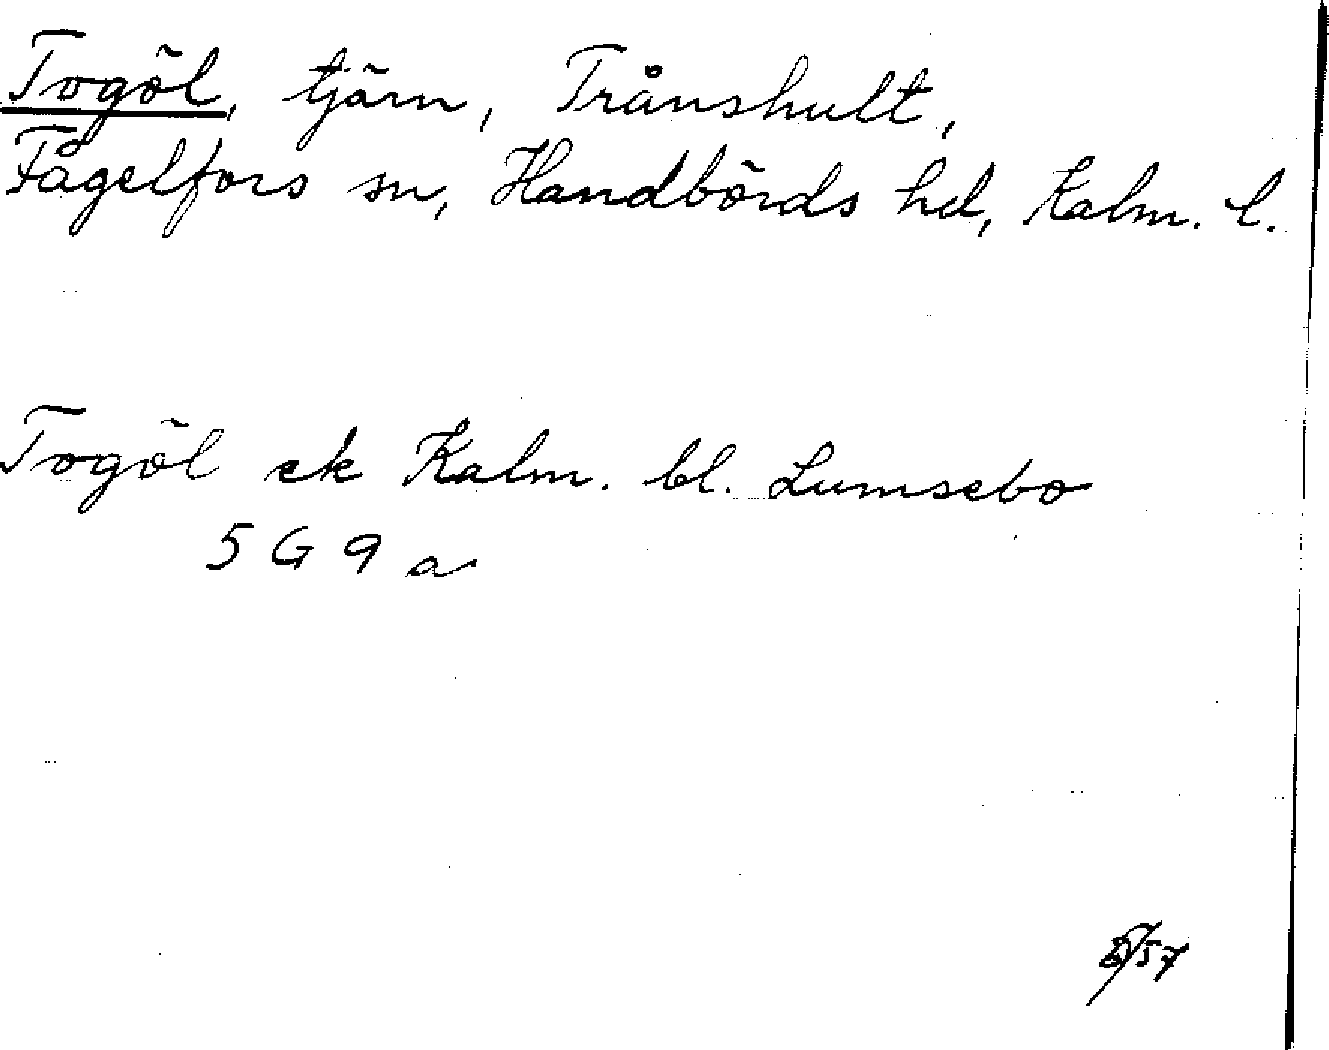 Togöl, tjärn, Trånshult,
Fågelfors sn, Handbörds hd, Kalm. l.
Togöl ek Kalm. bl. Lumsebo
5 G 9 a